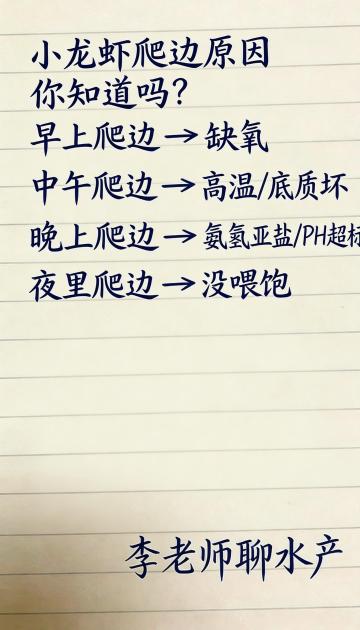 小龙虾爬边原因
你知道吗?
早上爬边→缺氧
中午爬边→高温/底质坏
晚上爬边→氨氢亚盐/PH超标
夜里爬边→没喂饱
李老师聊水产